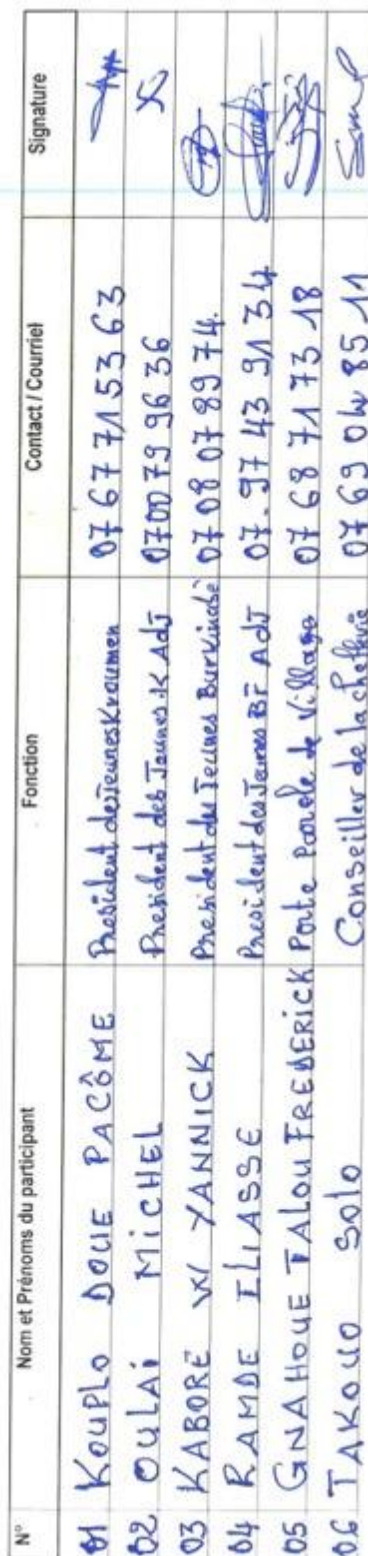 N° Nom et Prénoms du participant Fonction Contact / Courriel Signature
01 KOUPLO DOUE PACÔME President des Jeunes Kroumen 07 67 71 53 63
02 OULAÏ MICHEL President des Jeunes K Adj 07 00 79 96 36
03 KABORE W YANNICK President des Jeunes Burkinabè 07 08 07 89 74
04 RAMDE ILIASSE President des Jeunes BF Adj 07 97 43 91 34
05 GNAHOUE TALOU FREDERICK Porte Parole de Village 07 68 71 73 18
06 TAKOUO SOLO Conseiller de la chefferie 07 69 04 85 11